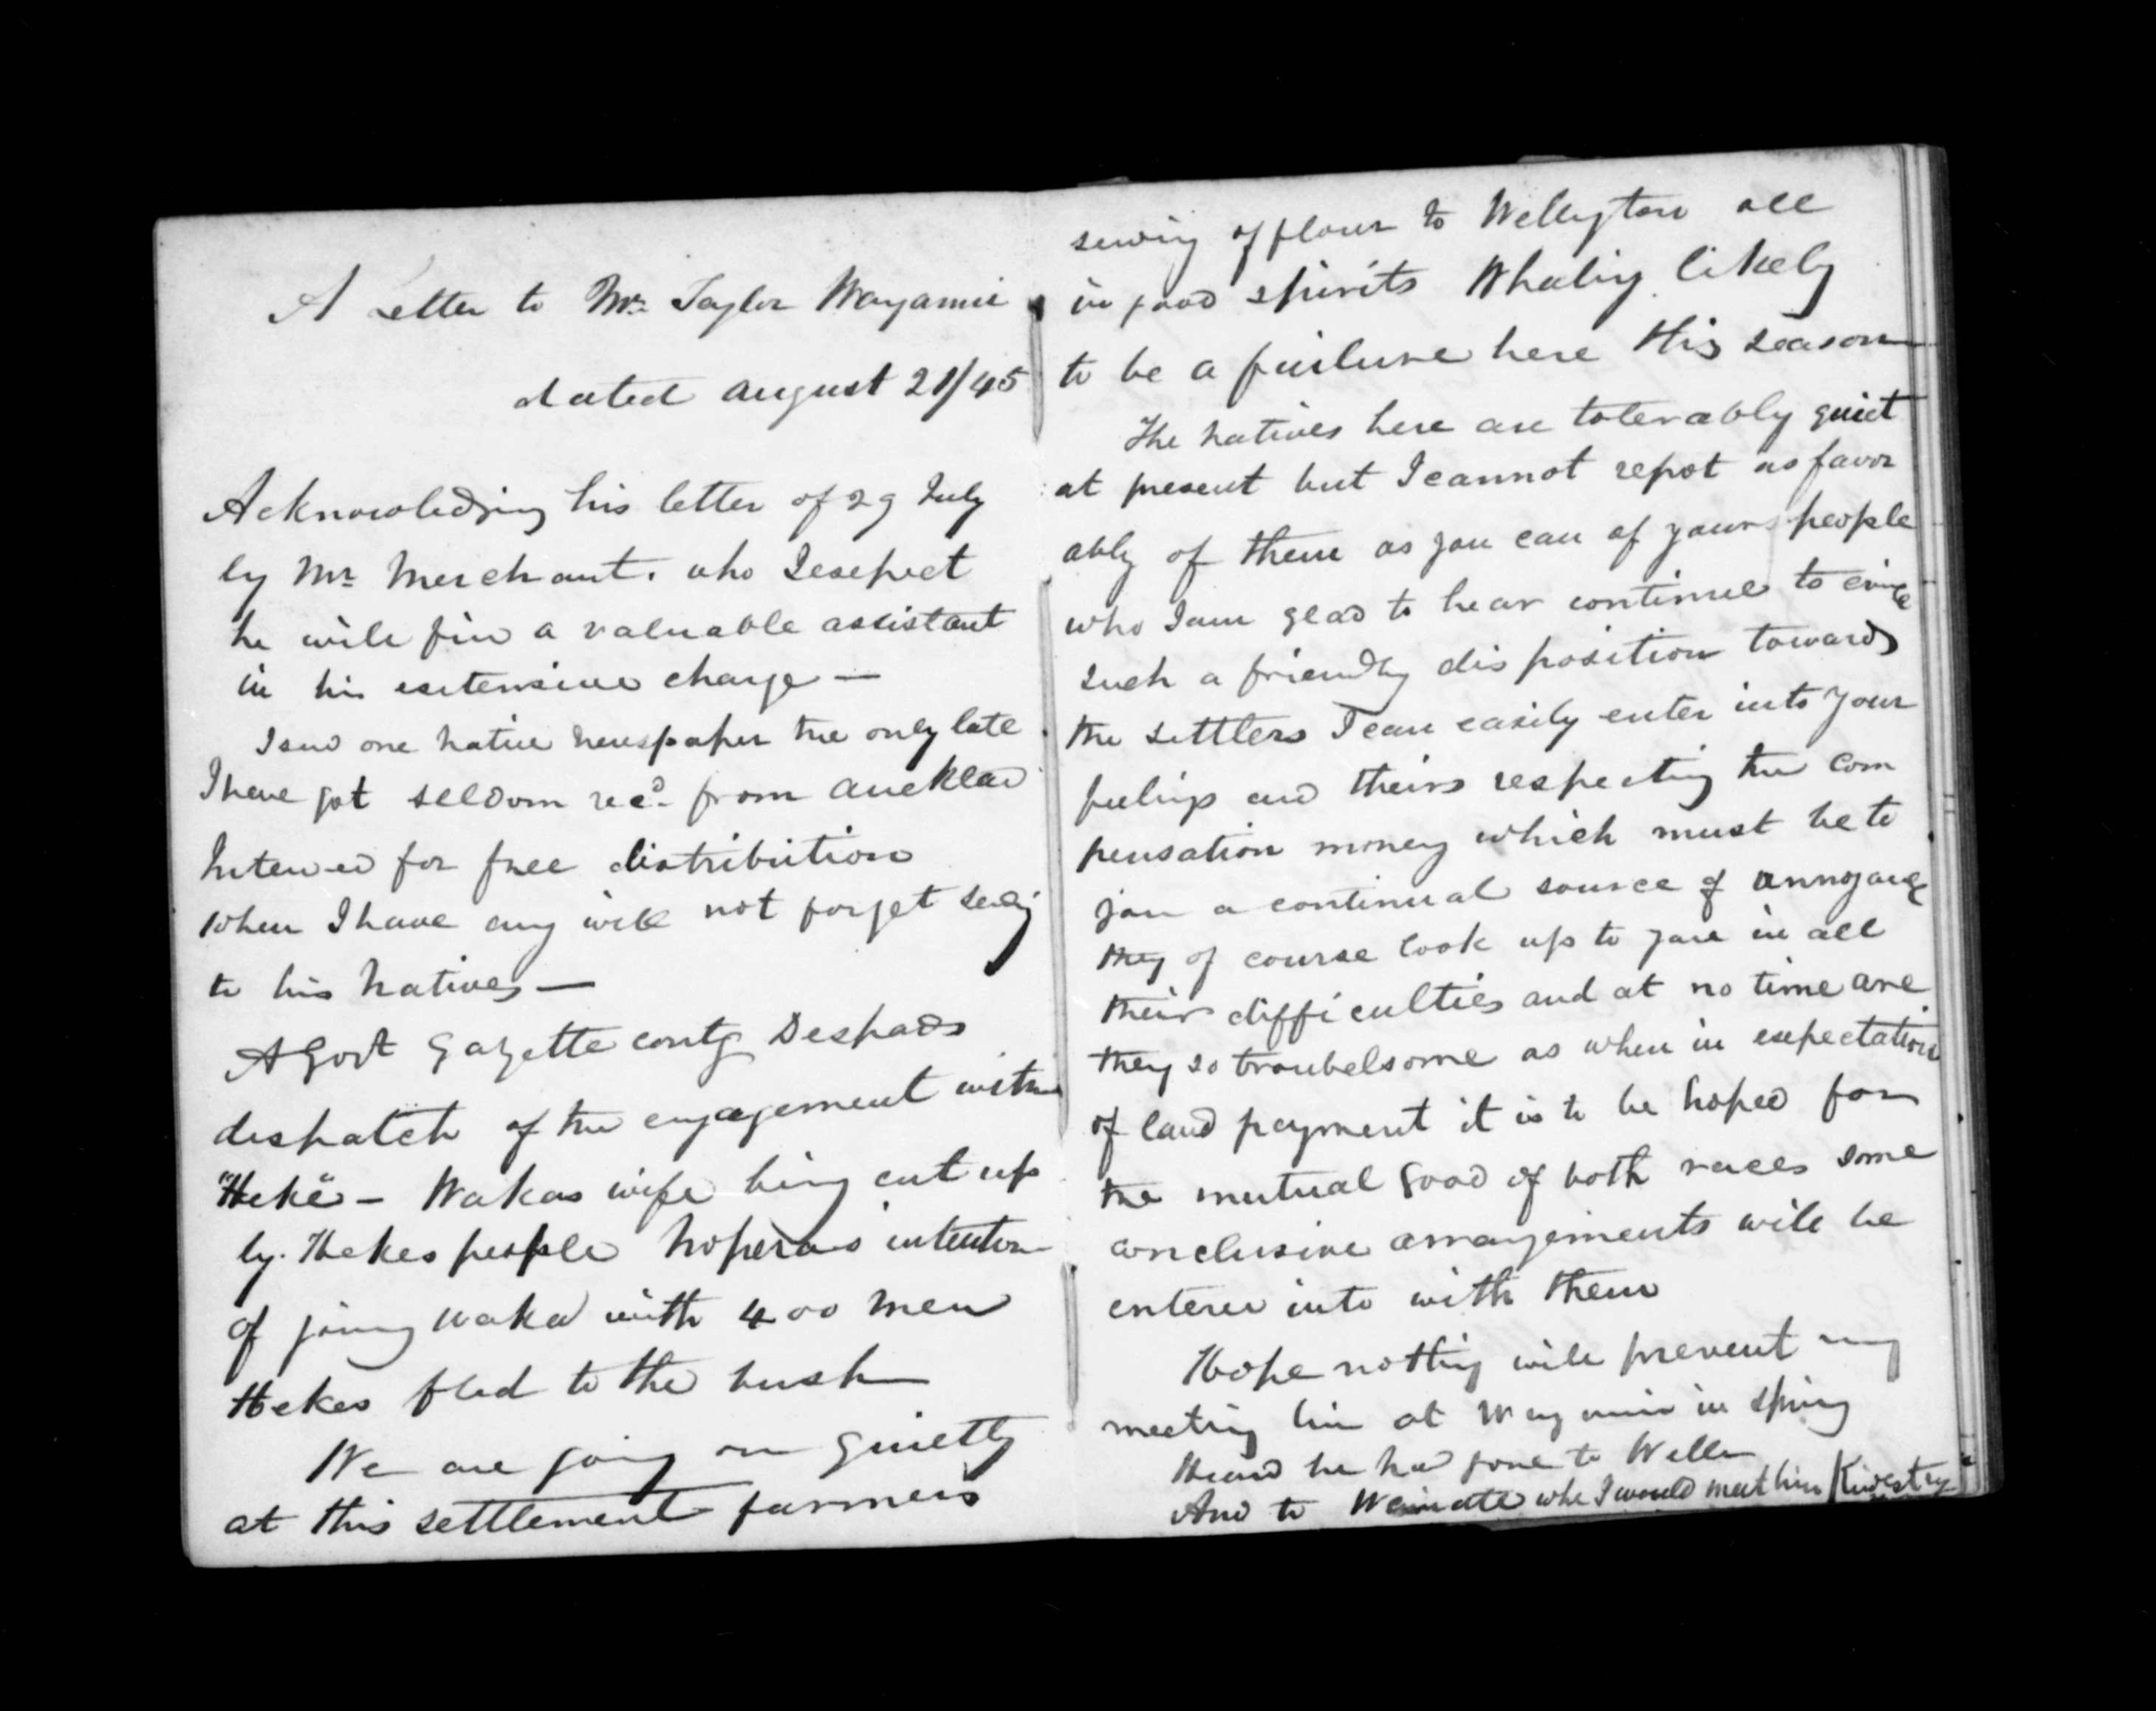 A Letter to Mr Taylor Wayamie
dated August 21/45
Acknowledging his letter of 29 July
by Mr Merchant. who I expect
he will fin a valuable assistant
in his extensive charge —
I send one native newspaper the only late
I have got seldom recd from Aucklad
Intended for free distribution
When I have any will not forget sendg
to his natives —
A Govt Gazette contg Despards
despatch of the engagement with
"Heke" — Wakas wife being cut up
by Hekes people Noperas intention
of joing Waka with 400 men
Hekes fled to the bush
We are going on quietly
at this settlement farmers
sending off flour to Wellington all
in good spirits Whaling likely
to be a failure here this season
The natives here are tolerably quiet
at present but I cannot repot as favor
ably of them as you can of your people
who I am glad to hear continue to evince
such a friendly disposition towards
the settlers I can easily enter into your
feelings and theirs respecting the com
pensation money which must be to
you a continual source of annoyance
they of course look up to you in all
their difficulties and at no time are
they so troubelsome as when in expectation
of land payment it is to be hoped for
the mutual good of both races some
conclusive arrangements will be
entered into with them
Hope nothing will prevent my
meeting him at Waymie in spring
Heard he had gone to Welln
And to Waimate whe I would meet him